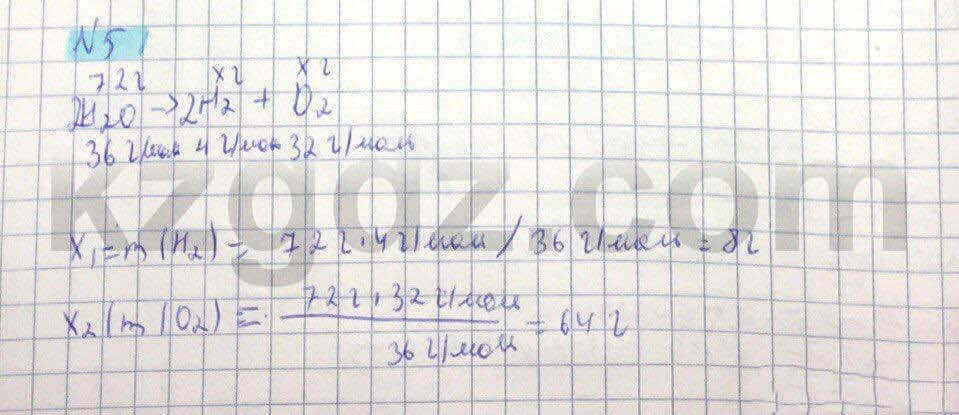 N5
72г хг хг
2H₂O → 2H₂ + O₂
36 г/моль 4 г/мол 32 г/моль
kzgaz.com
X₁ = m(H₂) = 72г · 4г/моль / 36 г/моль = 8г
X₂ (m(O₂) = 72г · 32г/моль / 36 г/моль = 64 г